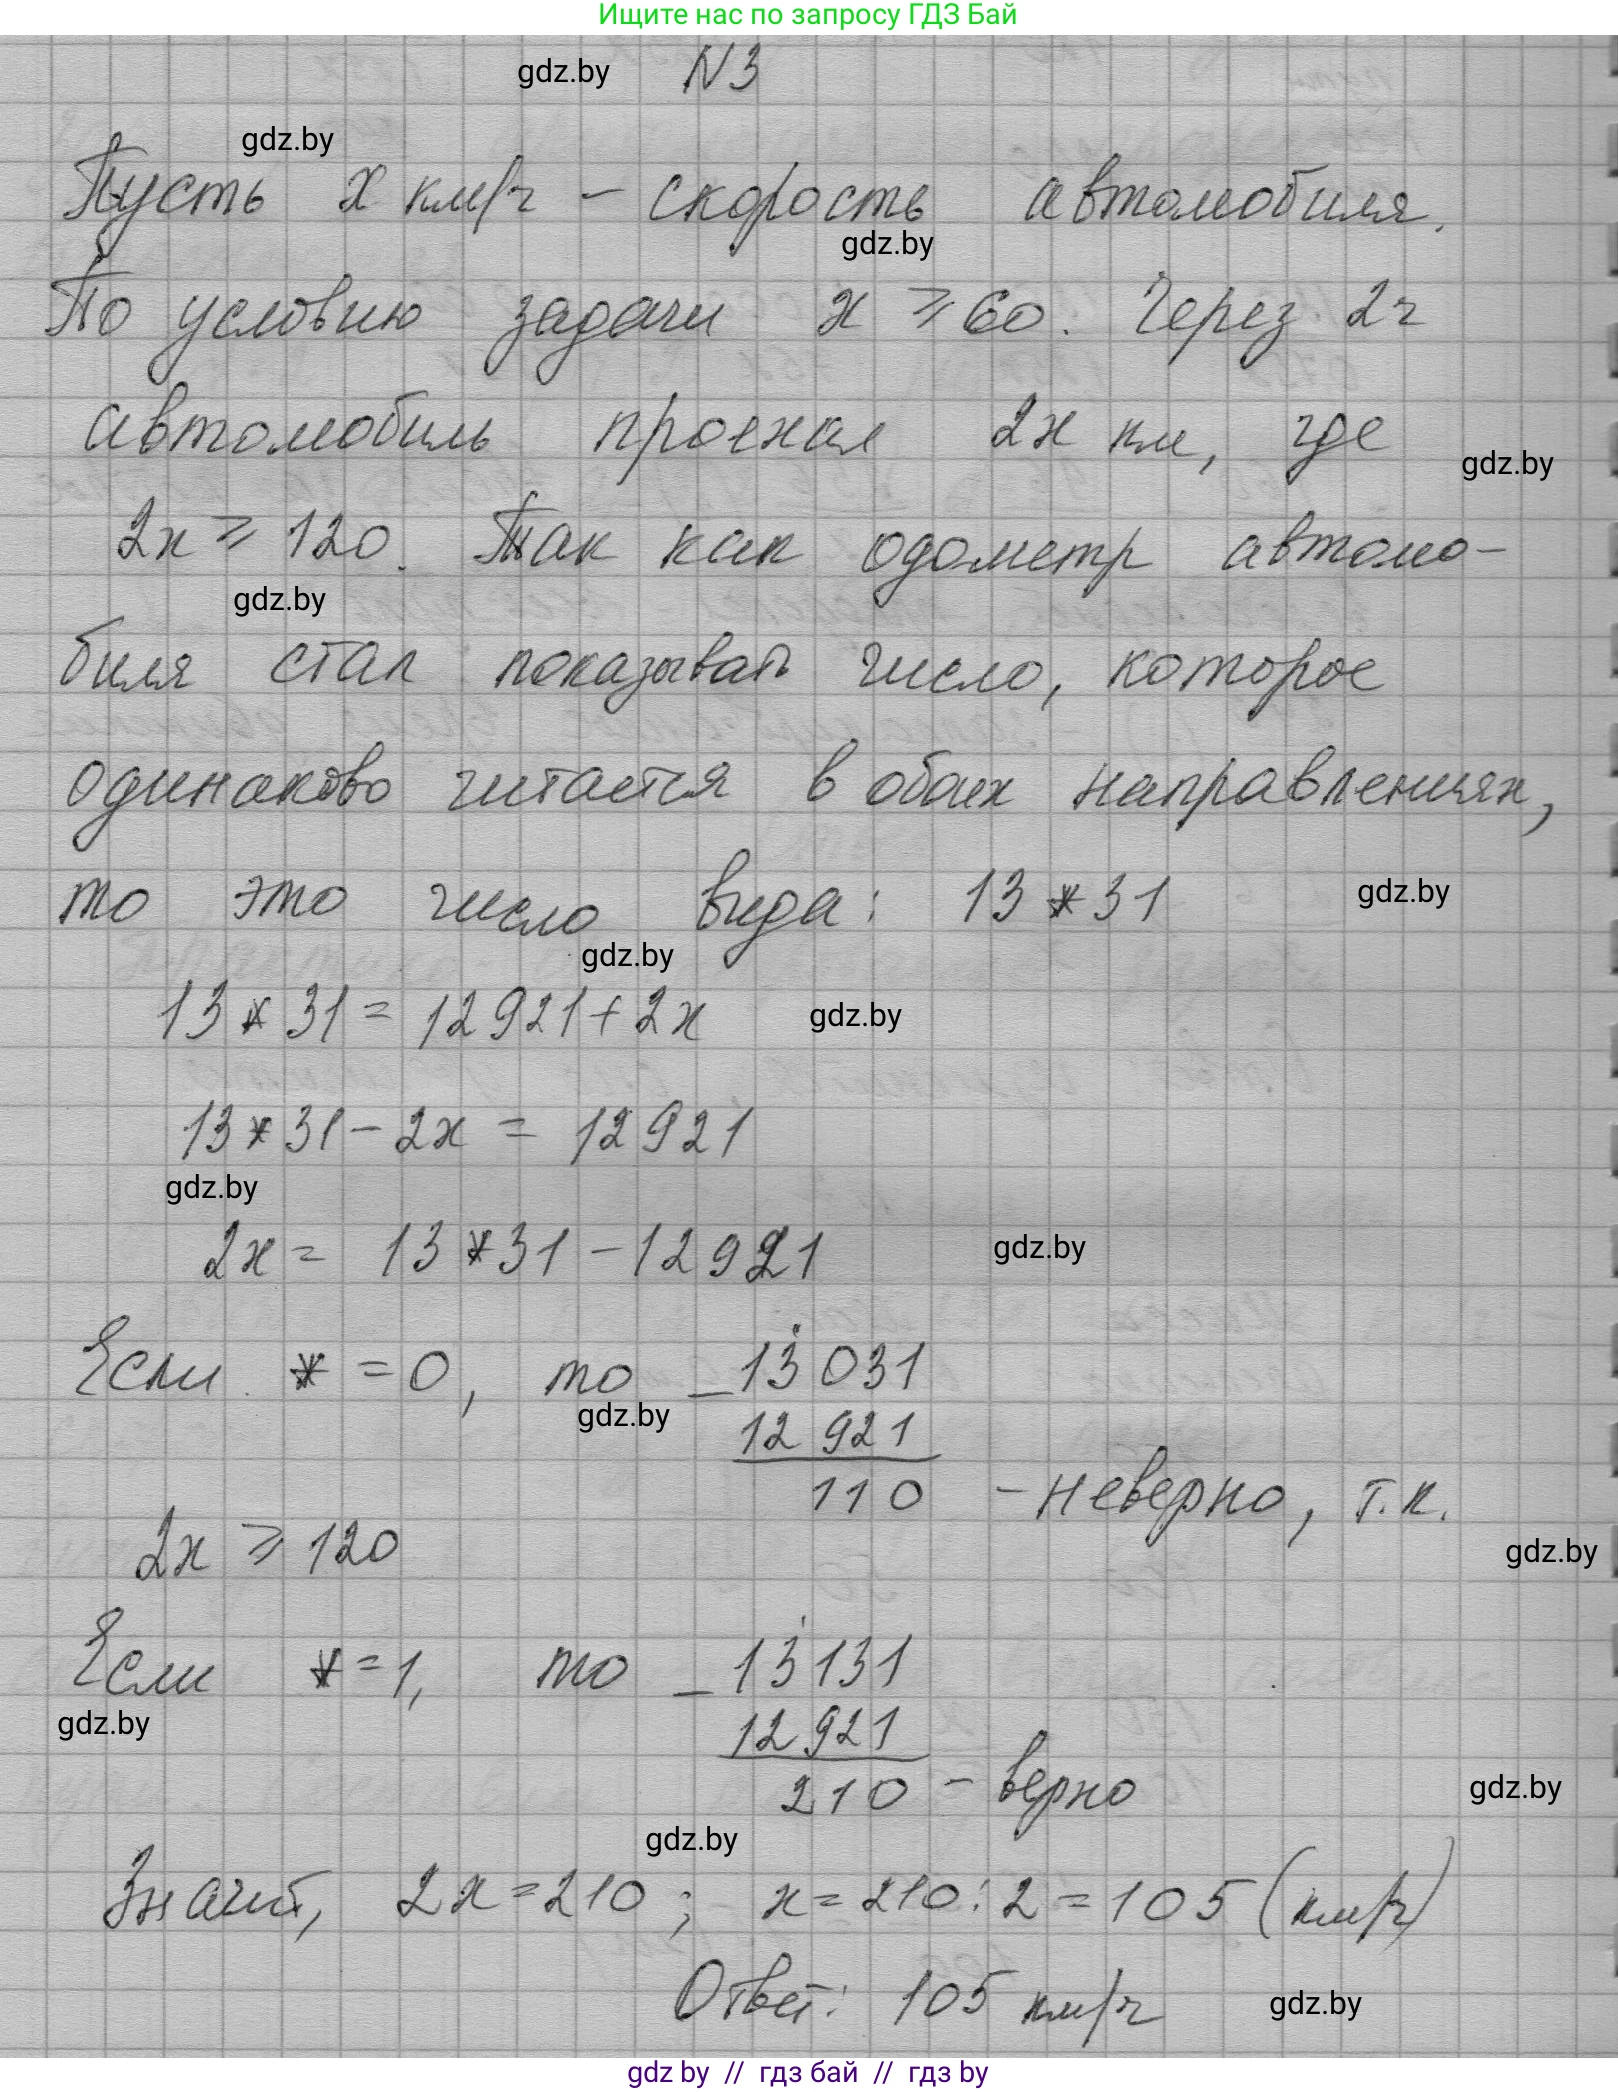 Ищите нас по запросу ГДЗ Бай
gdz.by N3
gdz.by
Пусть x км/ч – скорость автомобиля.
gdz.by
По условию задачи x ⩾ 60. Через 2ч
автомобиль проехал 2x км, где
gdz.by
2x ⩾ 120. Так как одометр автомо-
gdz.by
биля стал показывать число, которое
одинаково читается в обоих направлениях,
то это число вида: 13*31 gdz.by
gdz.by
13*31 = 12921 + 2x gdz.by
13*31 – 2x = 12921
gdz.by
2x = 13*31 – 12921 gdz.by
Если * = 0, то – 13031
gdz.by 12921
110 – неверно, т.к.
2x ⩾ 120 gdz.by
Если * = 1, то – 13131
gdz.by 12921
210 – верно gdz.by
gdz.by
Значит, 2x = 210; x = 210:2 = 105 (км/ч)
Ответ: 105 км/ч gdz.by
gdz by // гдз бай // гдз by